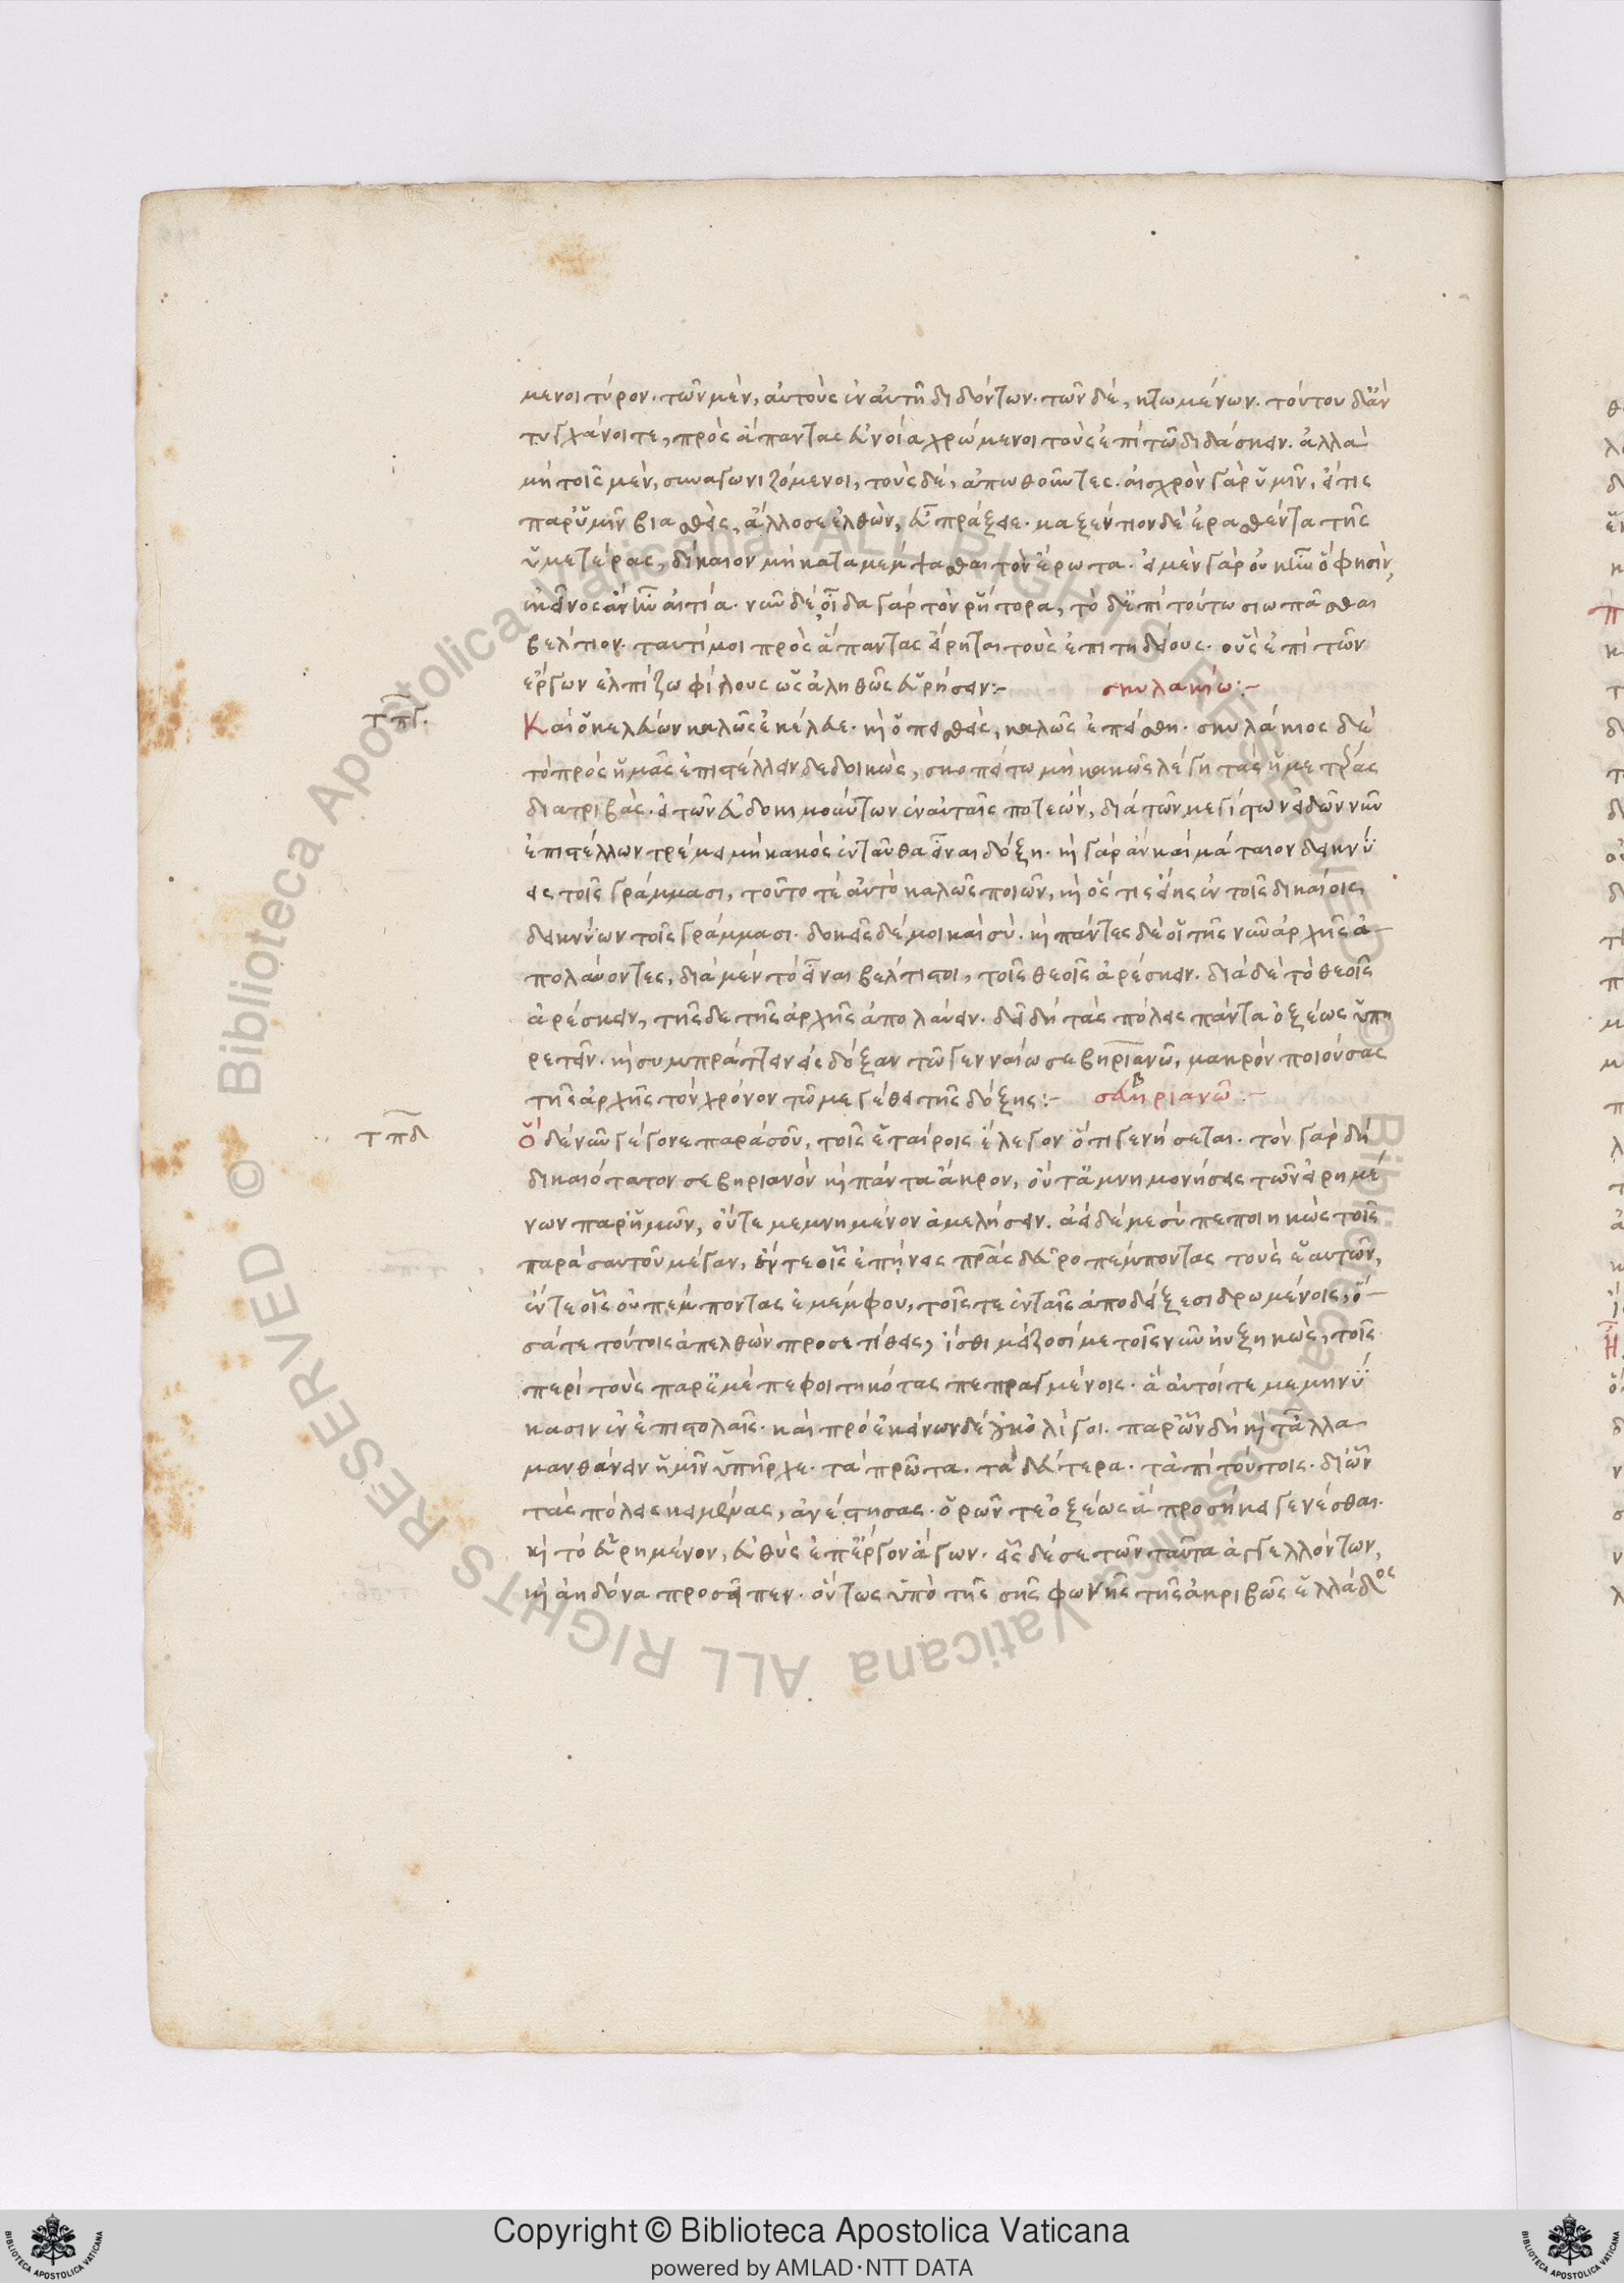 μενοι τύρον. τῶν μὲν, αὐτοὺς ἐν αὐτῇ διδόντων. τῶν δέ, κτωμένων. τούτου δ' ἂν
τυγχάνοιτε, πρὸς ἅπαντας εὐνοία χρώμενοι τοὺς ἐπὶ τῶ διδάσκειν. ἀλλὰ
μὴ τοῖς μὲν, συναγωνιζόμενοι, τοὺς δέ, ἀπωθοῦντες. αἰσχρὸν γὰρ ὑμῖν, εἴ τις
παρ' ὑμῖν βιασθεὶς, ἄλλοσε ἐλθὼν, εὖ πράξει. μαξέντιον δὲ ἐρασθέντα τῆς
ὑμετέρας, δίκαιον μὴ καταμέμψασθαι τὸν ἔρωτα. εἰ μὲν γὰρ οὐκ ἦν ὅ φησιν,
ἐκεῖνος ἂν ἦν αἰτία. νῦν δέ, οἶδα γὰρ τὸν ῥήτορα, τὸ δ' ἐπὶ τούτω σιωπᾶσθαι
βέλτιον. ταυτί μοι πρὸς ἅπαντας εἴρηται τοὺς ἐπιτηδείους. οὓς ἐπὶ τῶν
ἔργων ἐλπίζω φίλους ὡς ἀληθῶς εὑρήσειν:- σκυλακίω:-
τπγ. Καὶ ὁ κελεύων καλῶς ἐκέλευε. καὶ ὁ πεισθεὶς, καλῶς ἐπείσθη. σκυλάκιος δὲ
τὸ πρὸς ἡμᾶς ἐπιστέλλειν δεδοικὼς, σκοπείτω μὴ κακῶς λέγη τὰς ἡμετέρας
διατριβάς. εἰ τῶν εὐδοκιμούντων ἐν αὐταῖς ποτε ὢν, διὰ τῶν μεγίστων εἰδῶν νῦν
ἐπιστέλλων τρέμει μὴ κακὸς ἐνταῦθα εἶναι δόξη. καὶ γὰρ ἂν καὶ μάταιον δεικνύ
εις τοῖς γράμμασι, τοῦτό τε αὐτὸ καλῶς ποιῶν, καὶ ὅστις εἴης ἐν τοῖς δικαίοις,
δεικνύων τοῖς γράμμασι. δοκεῖς δέ μοι καὶ σὺ. καὶ πάντες δὲ οἱ τῆς νῦν ἀρχῆς ἀ
πολαύοντες, διὰ μὲν τὸ εἶναι βέλτιστοι, τοῖς θεοῖς ἀρέσκειν. διὰ δὲ τὸ θεοῖς
ἀρέσκειν, τῆσδε τῆς ἀρχῆς ἀπολαύειν. δεῖ δὴ τὰς πόλεις πάντα ὀξέως ὑπη
ρετεῖν. καὶ συμπράττειν εἰς δόξαν τῶ γενναίω σεβηριανῶ, μακρὸν ποιούσας
τῆς ἀρχῆς τὸν χρόνον τῶ μεγέθει τῆς δόξης:- σευηριανῶ:-
τπδ Ὃ δὲ νῦν γέγονε παρὰ σοῦ, τοῖς ἑταίροις ἔλεγον ὅτι γενήσεται. τὸν γὰρ δὴ
δικαιότατον σεβηριανὸν καὶ πάντα ἄκρον, οὔτ' ἀμνημονήσειν τῶν εἰρημέ
νων παρ' ἡμῶν, οὔτε μεμνημένον ἀμελήσειν. ἀεὶ δέ με σὺ πεποιηκὼς τοῖς
παρὰ σαυτοῦ μέγαν, ἔν τε οἷς ἐπήνεις πρᾶς δεῦρο πέμποντας τοὺς ἑαυτῶν,
ἔν τε οἷς οὐ πέμποντας ἐμέμφου, τοῖς τε ἐν ταῖς ἀποδείξεσι δρωμένοις, ὅ
σα τε τούτοις ἀπελθὼν προσετίθεις, ἴσθι μείζοσί με τοῖς νῦν ηὐξηκὼς, τοῖς
περὶ τοὺς παρ' ἐμὲ πεφοιτηκότας πεπραγμένοις. ἃ αὐτοί τε μεμηνύ
κασιν ἐν ἐπιστολαῖς. καὶ πρὸ ἐκείνων δέ γ' οὐκ ὀλίγοι. παρ' ὧν δὴ καὶ τἆλλα
μανθάνειν ἡμῖν ὑπῆρχε. τὰ πρῶτα. τὰ δεύτερα. τἀπὶ τούτοις. δι' ὧν
τὰς πόλεις κειμένας, ἀνέστησας. ὁρῶν τε ὀξέως ἃ προσήκει γενέσθαι.
καὶ τὸ εὑρημένον, εὐθὺς ἐπ' ἔργον ἄγων. εἷς δέ σε τῶν ταῦτα ἀγγελλόντων,
καὶ ἀηδόνα προσεῖπεν. οὕτως ὑπὸ τῆς σῆς φωνῆς τῆς ἀκριβῶς ἑλλάδος
Copyright © Biblioteca Apostolica Vaticana
powered by AMLAD·NTT DATA